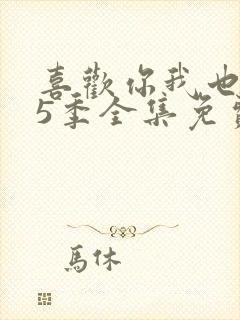 喜歡你我也
5季全集免
馬休